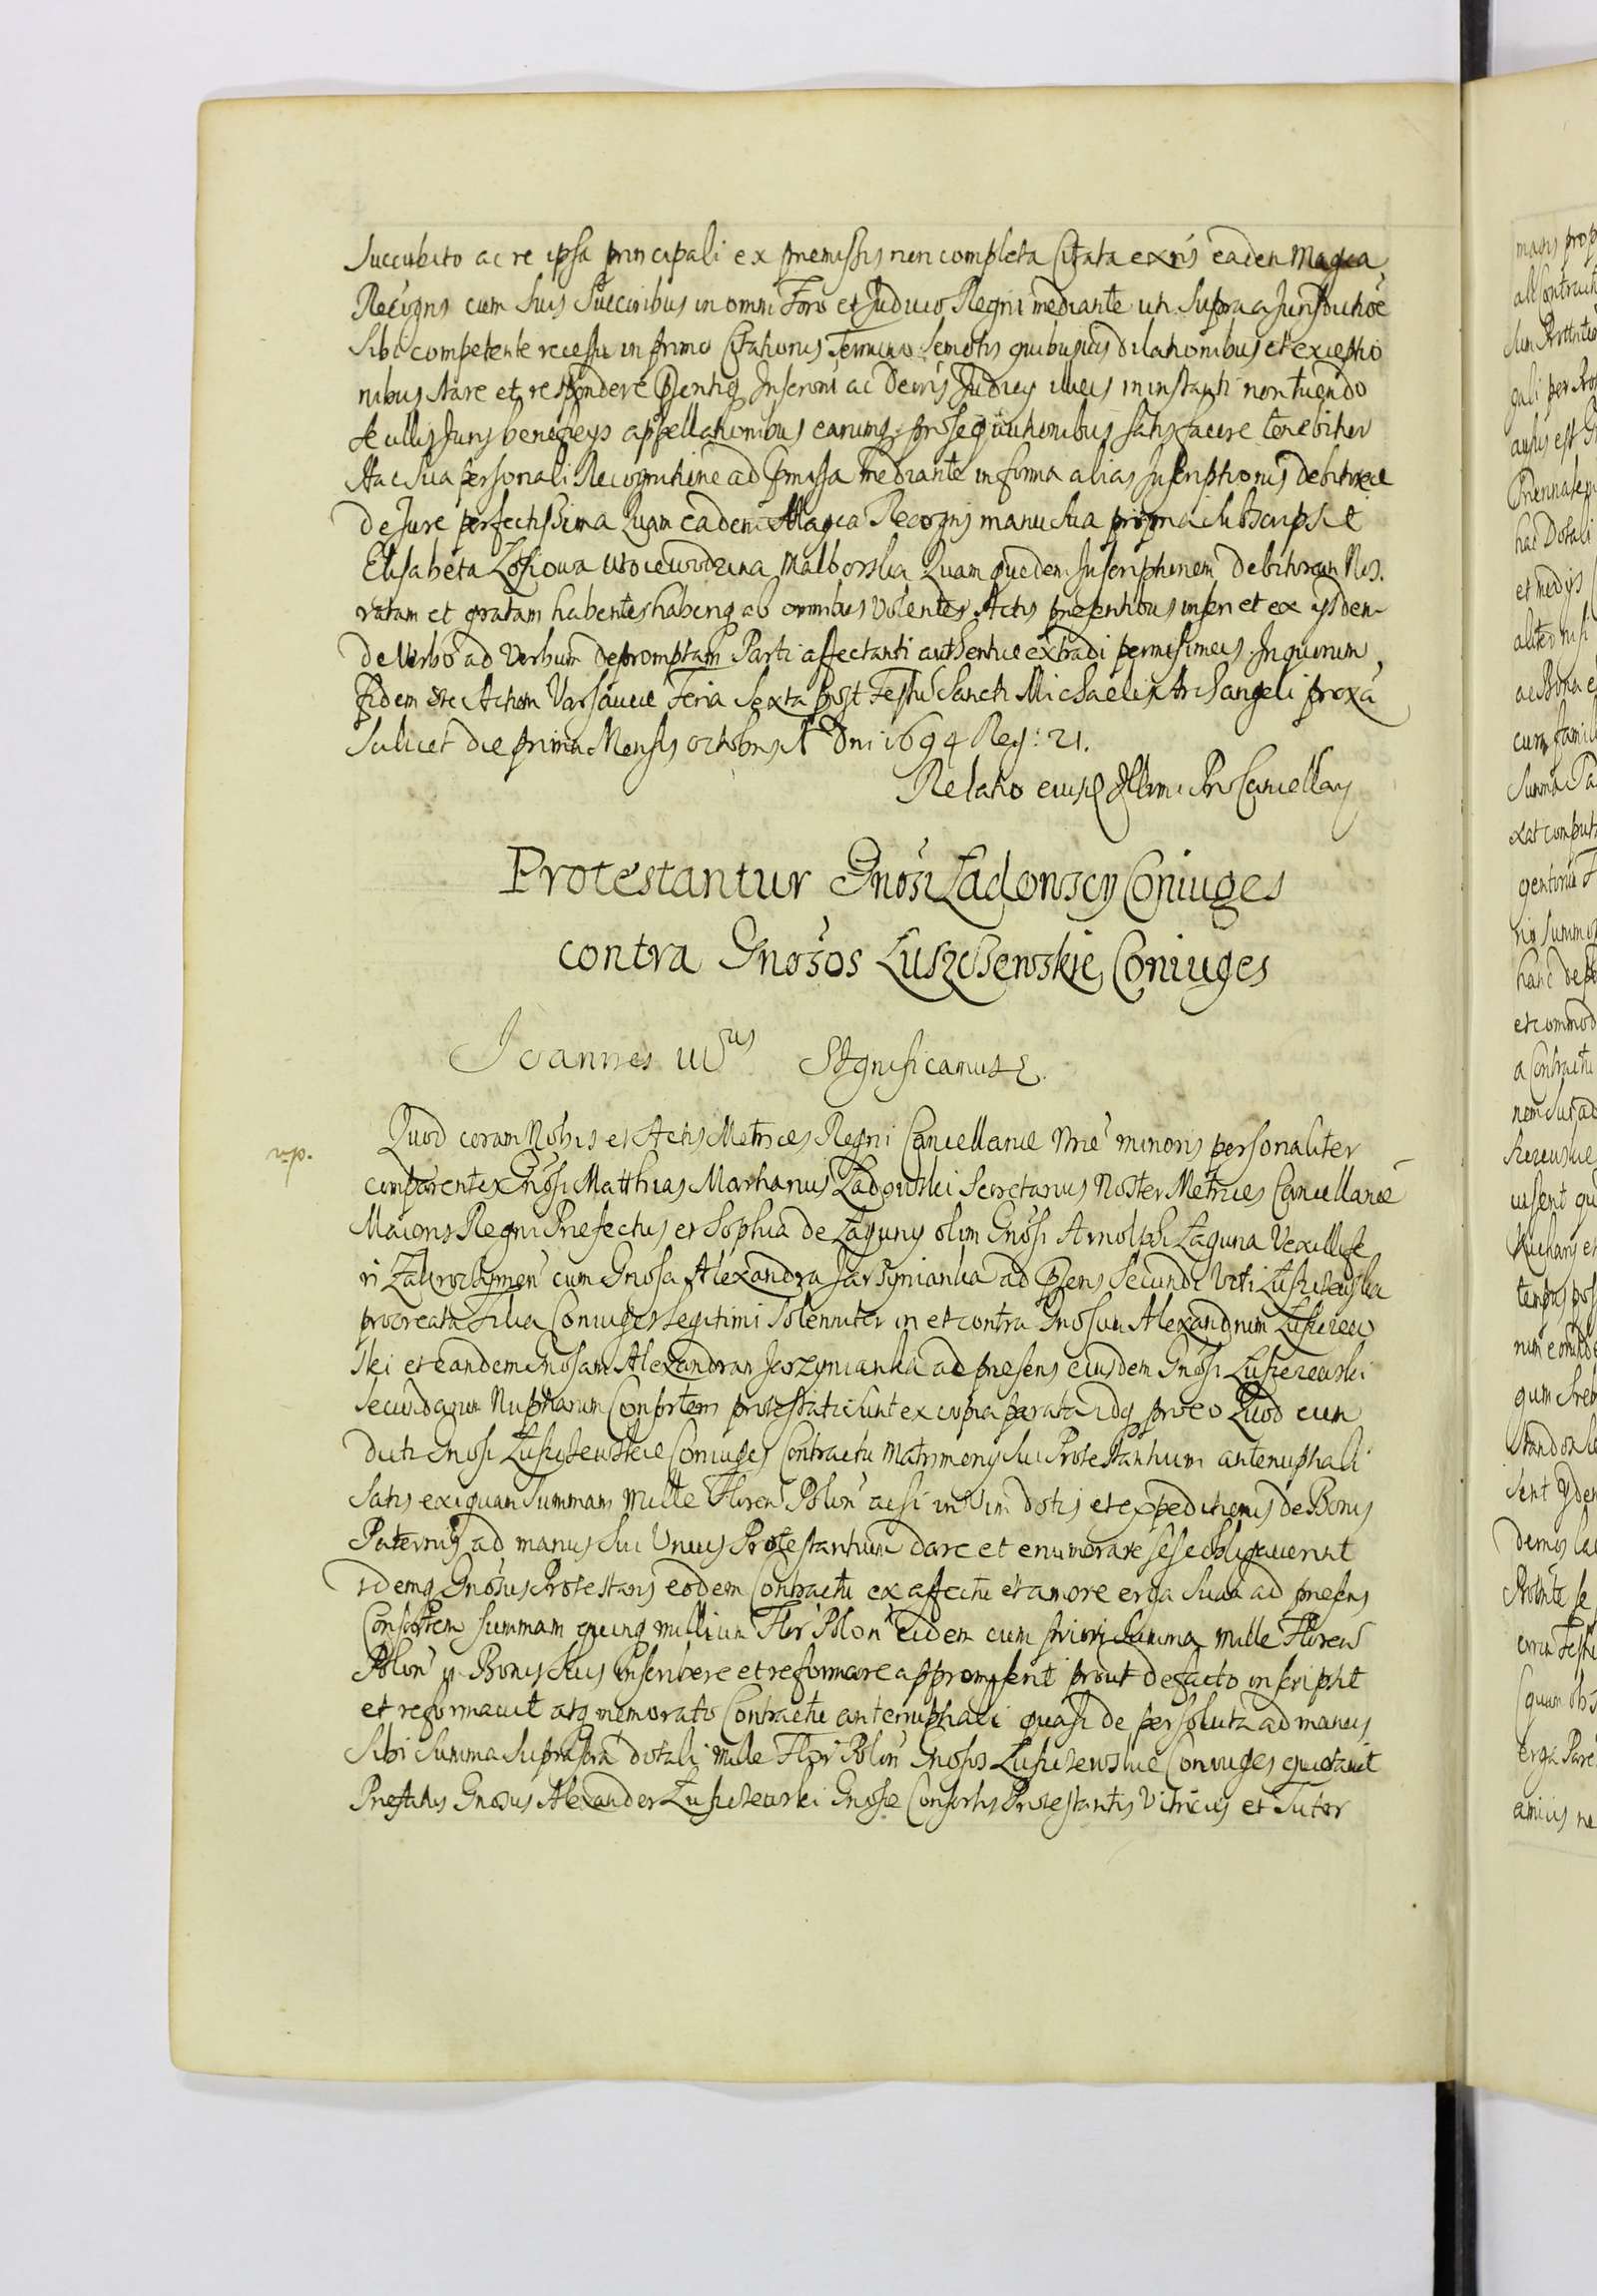 Succubito ac re ipsa principali ex præmissis non completa Citata ex nis eadem Magca
Recogns cum suis Succribus in omni Foro et Judicio Regni mediante uti supra a Jurisdictioe
Sibi competente recessu in primo Citationis Termino semotis quibusuis dilationibus et exceptio
nibus stare et respondere Pæntiq Inscrōni ac Decris Judicy illius in instanti non tuendo
se ullis Juris beneficys appellationibus earumq prosequutionibus satisfacere tenebitur
Hac sua personali Recognitione ad præmissa mediante in forma alias Inscriptionis debitoræ
de Jure perfectissima Quam eadem Magca Recogns manu sua propria subscripsit
Elisabeta Łosiowa Woiewodzina Malborska Quam quidem Inscriptionem debitoram Nos
ratam et gratam habentes haberiq ab omnibus volentes Actis præsentibus inseri et ex ijsdem
de Verbo ad Verbum depromptam Parti affectanti authentice extradi permisimus. In quorum
fidem etc Actum Varsauiæ Feria Sexta post Festū Sancti Michaelis Archangeli proxa
Scilicet die prima Mensis octobris Aº Dni 1694 Reg: 21.
Relatio eiusd Illmi ProCancellary
Protestantur Gnosi Ładowscy Coniuges
contra Gnosos Łuszczewskie Coniuges
Joannes IIIus Significamus &.
v.p.
Quod coram Nobis et Actis Metrices Regni Cancellariæ Nræ minoris personaliter
comparentes Gnosi Matthias Martianus Ładowski Secretarius Noster Metrices Cancellariæ
Maioris Regni Præfectus et Sophia de Łaguny olim Gnosi Arnolphi Łaguna Vexillife
ri Zakroczymen cum Gnosa Alexandra Jarzymianka ad Pæns Secundi Voti Łuszczewska
procreata Filia Coniuges legitimi Solenniter in et contra Gnosum Alexandrum Łuszczew
ski et eandem Gnosam Alexandram Jarzymianka ad præsens eiusdem Gnosi Łuszczewski
secundarum Nuptiarum Consortem protestati sunt ex copia parata idq pro eo Quod cum
dicti Gnosi Łuszczewskie Coniuges Contractu Matrimony sui Protestantium antenuptiali
Satis exiguam Summam Mille Floren Polon ac si in Vim dotis et expeditionis de Bonis
Paternis ad manus sui Unius Protestantium dare et enumerare sese obligauerunt
idemq Gnosus Protestans eodem Contractu ex affectu et amore erga suam ad præsens
Consortem Summam quinq millium Flor Polon eidem cum priori Summa mille Floren
Polon in Bonis suis inscribere et reformare appromiserit prout de facto inscripsit
et reformauit atq memorato Contractu antenuptiali quasi de persoluta ad manus
Sibi Summa suprascra dotali mille Flor Polon Gnosos Łuszczewskie Coniuges quietauit
Præfatus Gnosus Alexander Łuszczewski Gnosæ Consortis Protestantis Vitricus et Tutor